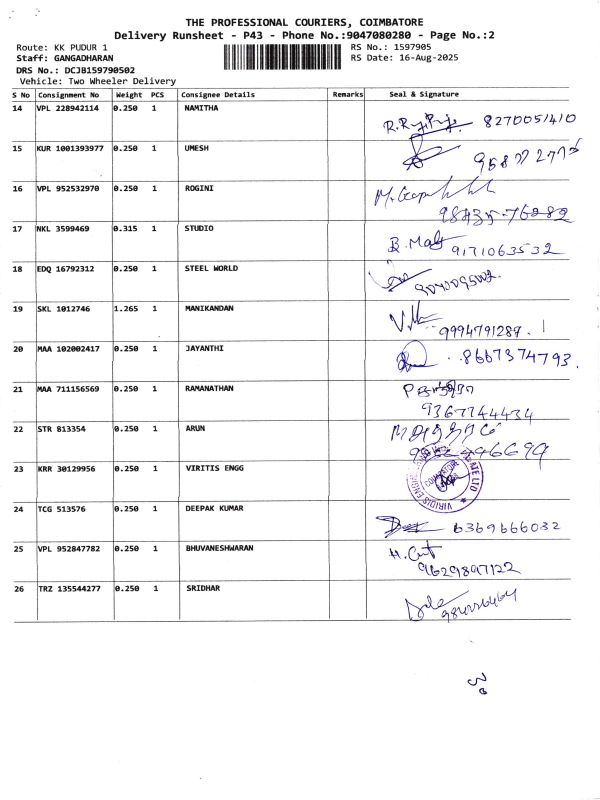 THE PROFESSIONAL COURIERS, COIMBATORE
Delivery Runsheet - P43 - Phone No.:9047080280 - Page No.:2
Route: KK PUDUR 1 RS No.: 1597905
Staff: GANGADHARAN RS Date: 16-Aug-2025
DRS No.: DCJB159790502
Vehicle: Two Wheeler Delivery
S No Consignment No Weight PCS Consignee Details Remarks Seal & Signature
14 VPL 228942114 0.250 1 NAMITHA 8270051410
15 KUR 1001393977 0.250 1 UMESH
16 VPL 952532970 0.250 1 ROGINI 98435-76282
17 NKL 3599469 0.315 1 STUDIO 9171063532
18 EDQ 16792312 0.250 1 STEEL WORLD
19 SKL 1012746 1.265 1 MANIKANDAN 9994791289
20 MAA 102002417 0.250 1 JAYANTHI 8667374793
21 MAA 711156569 0.250 1 RAMANATHAN 9367744434
22 STR 813354 0.250 1 ARUN
23 KRR 30129956 0.250 1 VIRITIS ENGG
24 TCG 513576 0.250 1 DEEPAK KUMAR 6369666032
25 VPL 952847782 0.250 1 BHUVANESHWARAN 9629897122
26 TRZ 135544277 0.250 1 SRIDHAR